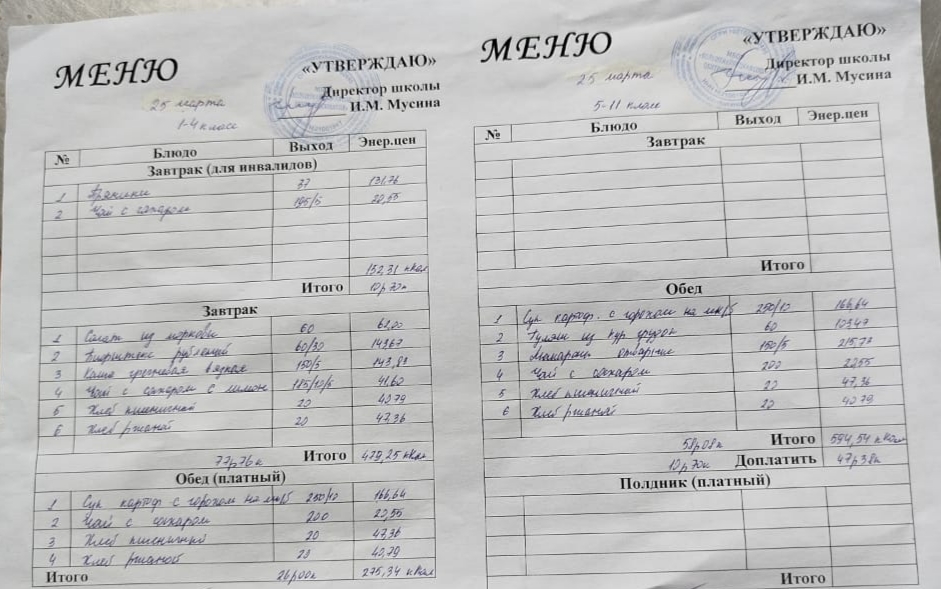 МЕНЮ
«УТВЕРЖДАЮ»
Директор школы
И.М. Мусина
25 марта
1-4 класс
№ Блюдо Выход Энер.цен
Завтрак (для инвалидов)
1 Пряники 37 131,76
2 Чай с сахаром 195/5 20,55
152,31 кКал
Итого 10р70к
Завтрак
1 Салат из моркови 60 61,00
2 Бифштекс рубленый 60/30 143,67
3 Каша гречневая вязкая 150/5 143,81
4 Чай с сахаром с лимон 185/10/5 41,60
5 Хлеб пшеничный 20 40,79
6 Хлеб ржаной 20 47,36
77р76к Итого 479,25 кКал
Обед (платный)
1 Суп картоф с горохом на мк/б 250/10 166,64
2 Чай с сахаром 200 20,55
3 Хлеб пшеничный 20 47,36
4 Хлеб ржаной 20 40,79
Итого 26р00к 275,34 кКал
МЕНЮ
«УТВЕРЖДАЮ»
Директор школы
И.М. Мусина
25 марта
5-11 класс
№ Блюдо Выход Энер.цен
Завтрак
Итого
Обед
1 Суп картоф. с горохом на мк/б 250/10 166,64
2 Гуляш из кур грудок 60 103,47
3 Макароны отварные 150/5 215,73
4 Чай с сахаром 200 20,55
5 Хлеб пшеничный 20 47,36
6 Хлеб ржаной 20 40,79
58р08к Итого 594,54 кКал
10р70к Доплатить 47р38к
Полдник (платный)
Итого